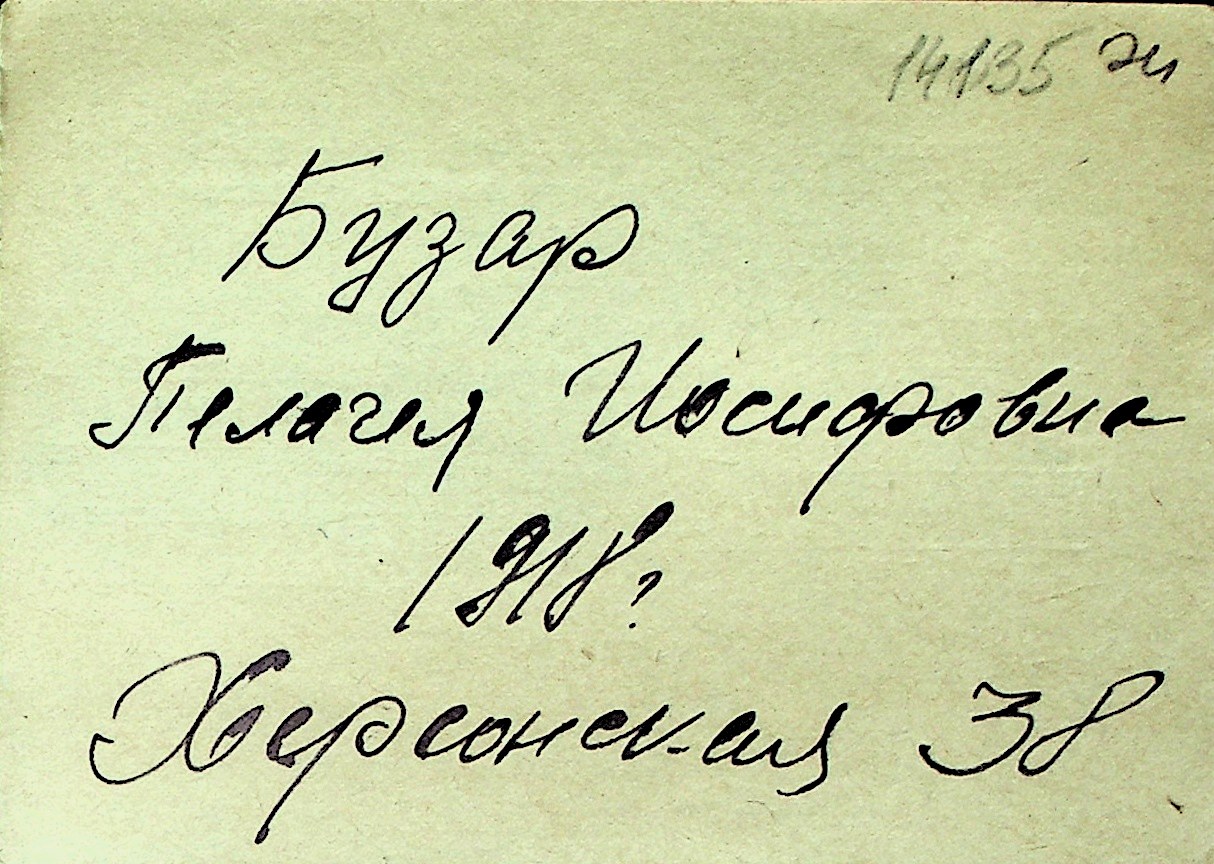 14135 эи
Бузар
Пелагея Иосифовна
1918г
Херсонская 38